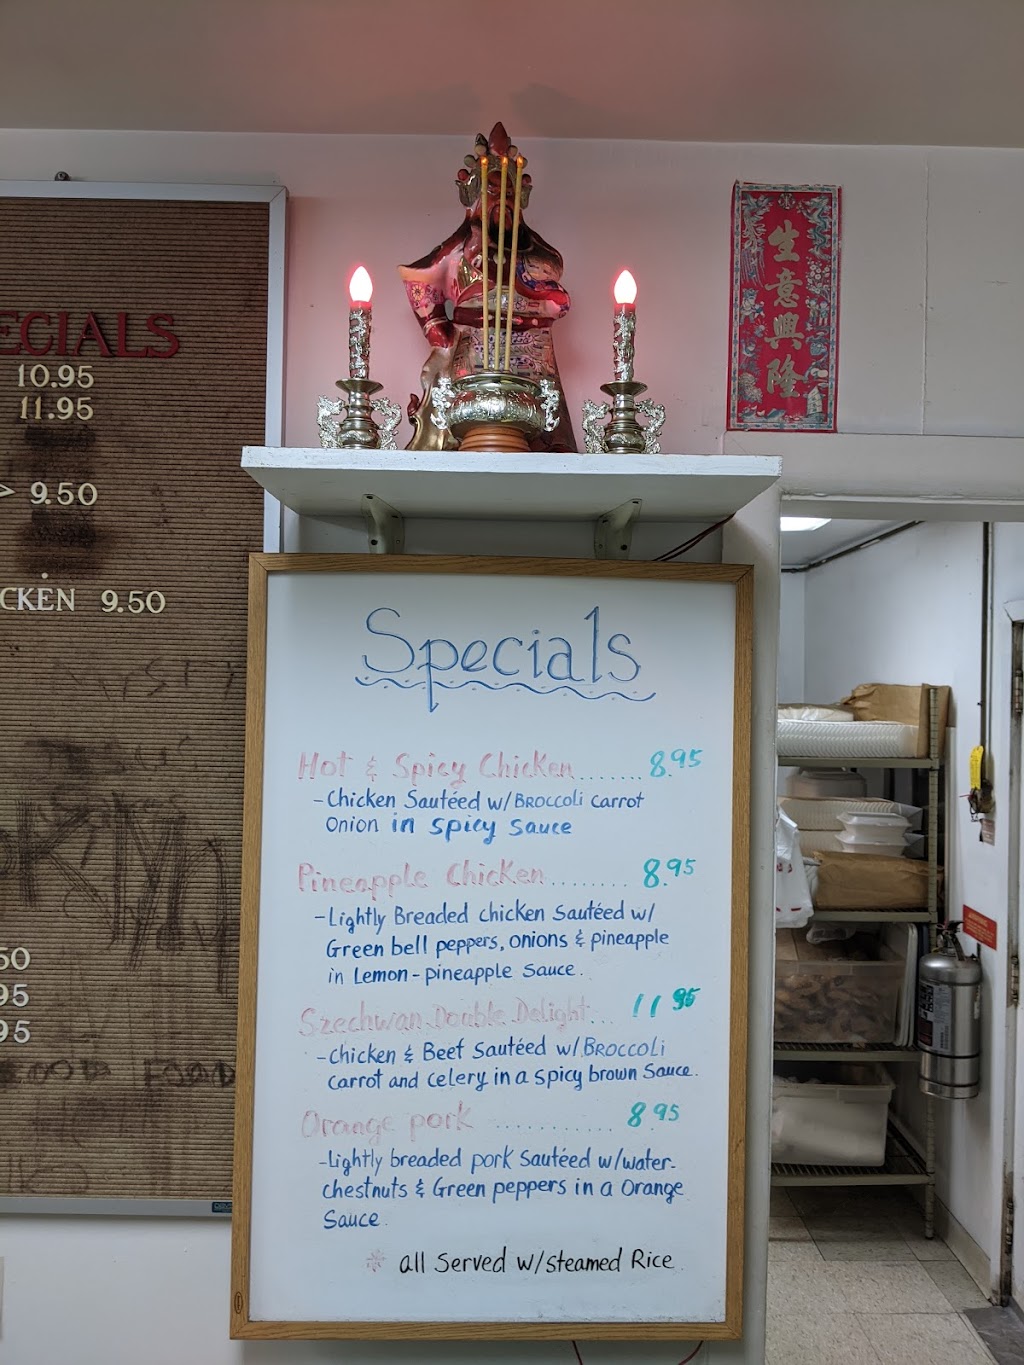 ECIALS
10.95
11.95
> 9.50
CKEN 9.50
50
95
95
生意興隆
Specials
Hot & Spicy Chicken....... 8.95
-Chicken Sautéed w/BROCCOLi carrot
Onion in spicy Sauce
Pineapple Chicken........ 8.95
-Lightly Breaded chicken Sautéed w/
Green bell peppers, onions & pineapple
in Lemon-pineapple Sauce.
Szechwan Double Delight... 11.95
-Chicken & Beef Sautéed w/BROCCOLi
carrot and celery in a spicy brown Sauce.
Orange pork ............ 8.95
-Lightly breaded pork Sautéed w/water-
chestnuts & Green peppers in a Orange
Sauce.
* all Served w/steamed Rice.